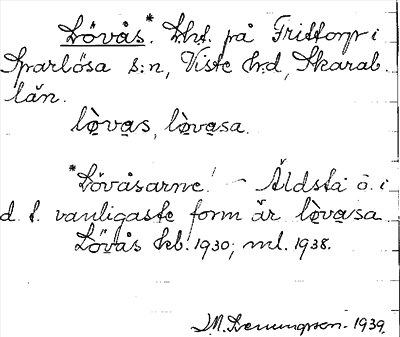 Lövås.* Lht. på Fristorp i
Sparlösa s:n, Viste h:d, Skarab.
län.
lòvas, lòvasa.
*Lövåsarne! — Äldsta o. i
d. f. vanligaste form är lòvasa
Lövås kb. 1930; ml. 1938.
1939.